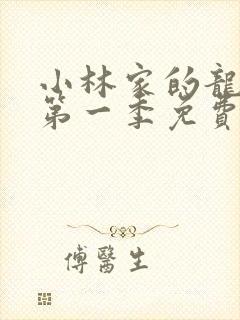 小林家的龍
第一季免費
傅醫生